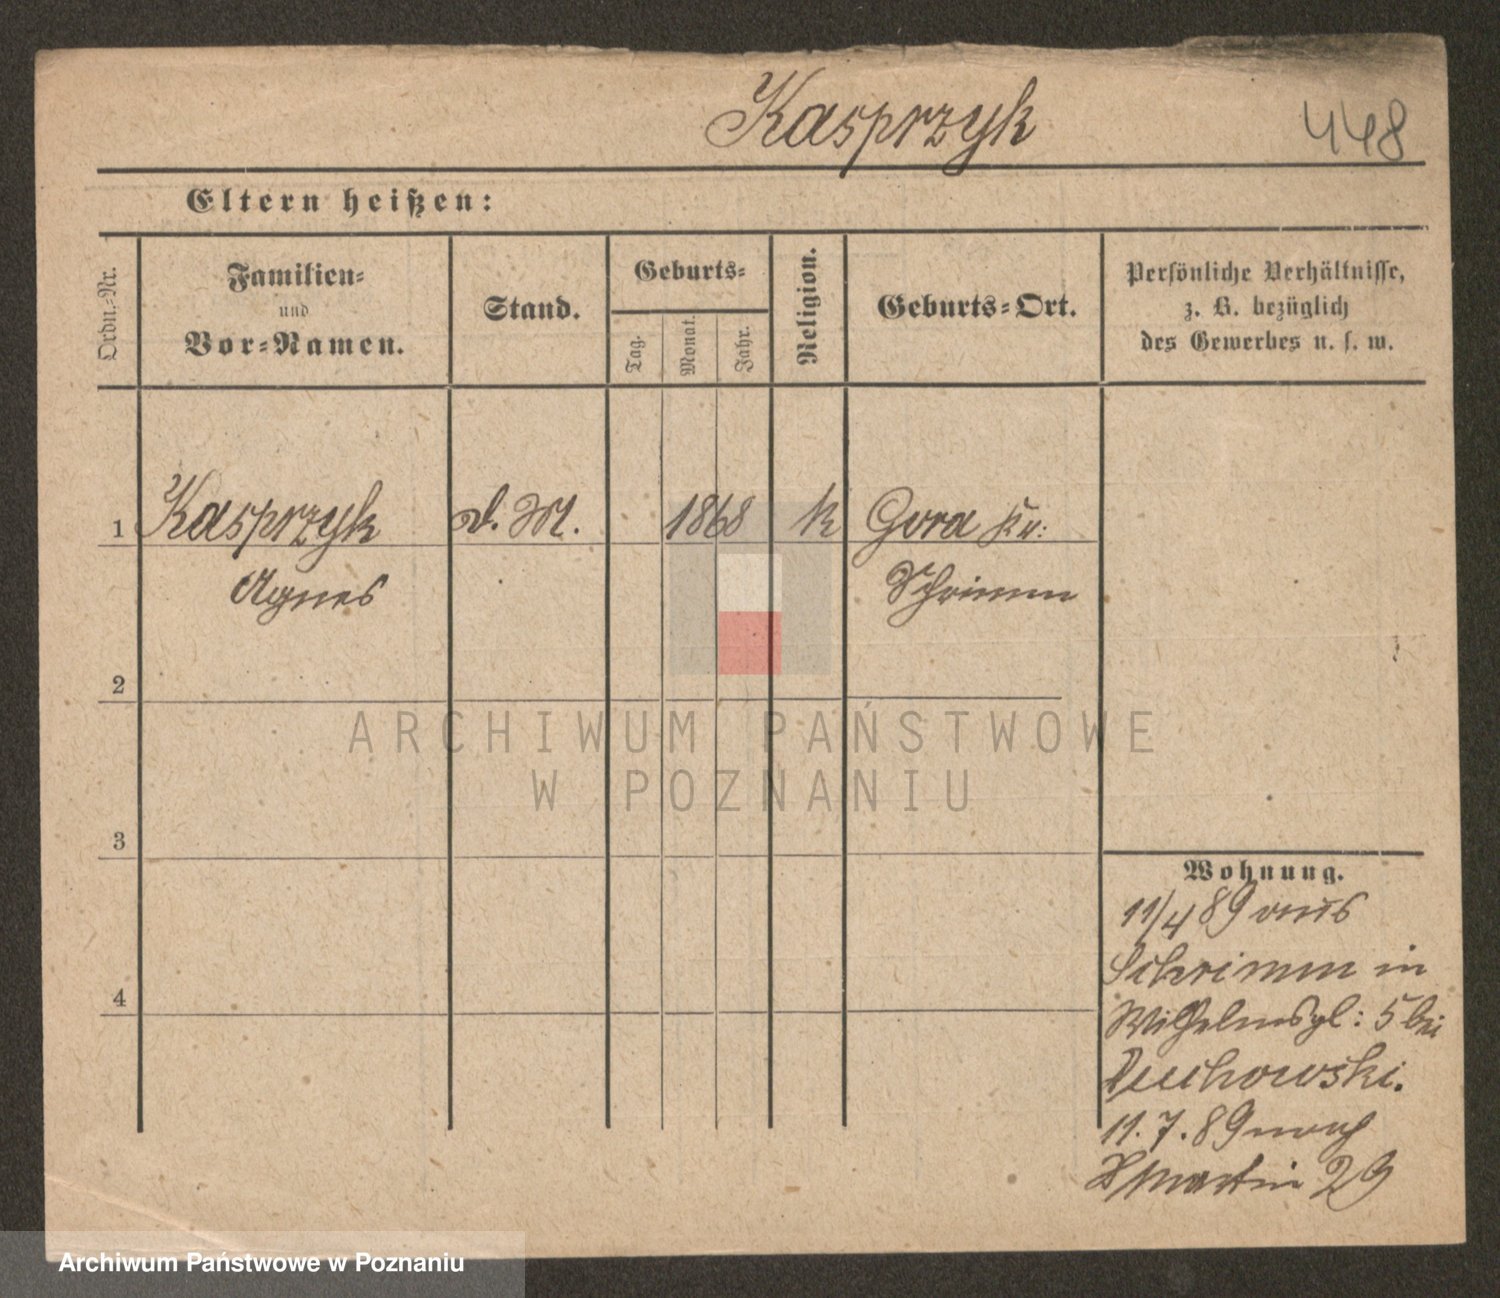 Kasprzyk 448
Eltern heißen:
Ordn.-Nr.
Familien-
und
Vor-Namen.
Stand.
Geburts-
Tag.
Monat.
Jahr.
Religion.
Geburts-Ort.
Persönliche Verhältnisse,
z. B. bezüglich
des Gewerbes u. s. w.
1 Kasprzyk d. M. 1868 k Gora Kr:
Agnes Schrimm
2
3
4
Wohnung.
11/4 89 aus
Schrimm in
Wilhelmspl: 5 bei
Duchowski.
11. 7. 89 nach
St Martin 29
ARCHIWUM PAŃSTWOWE
W POZNANIU
Archiwum Państwowe w Poznaniu